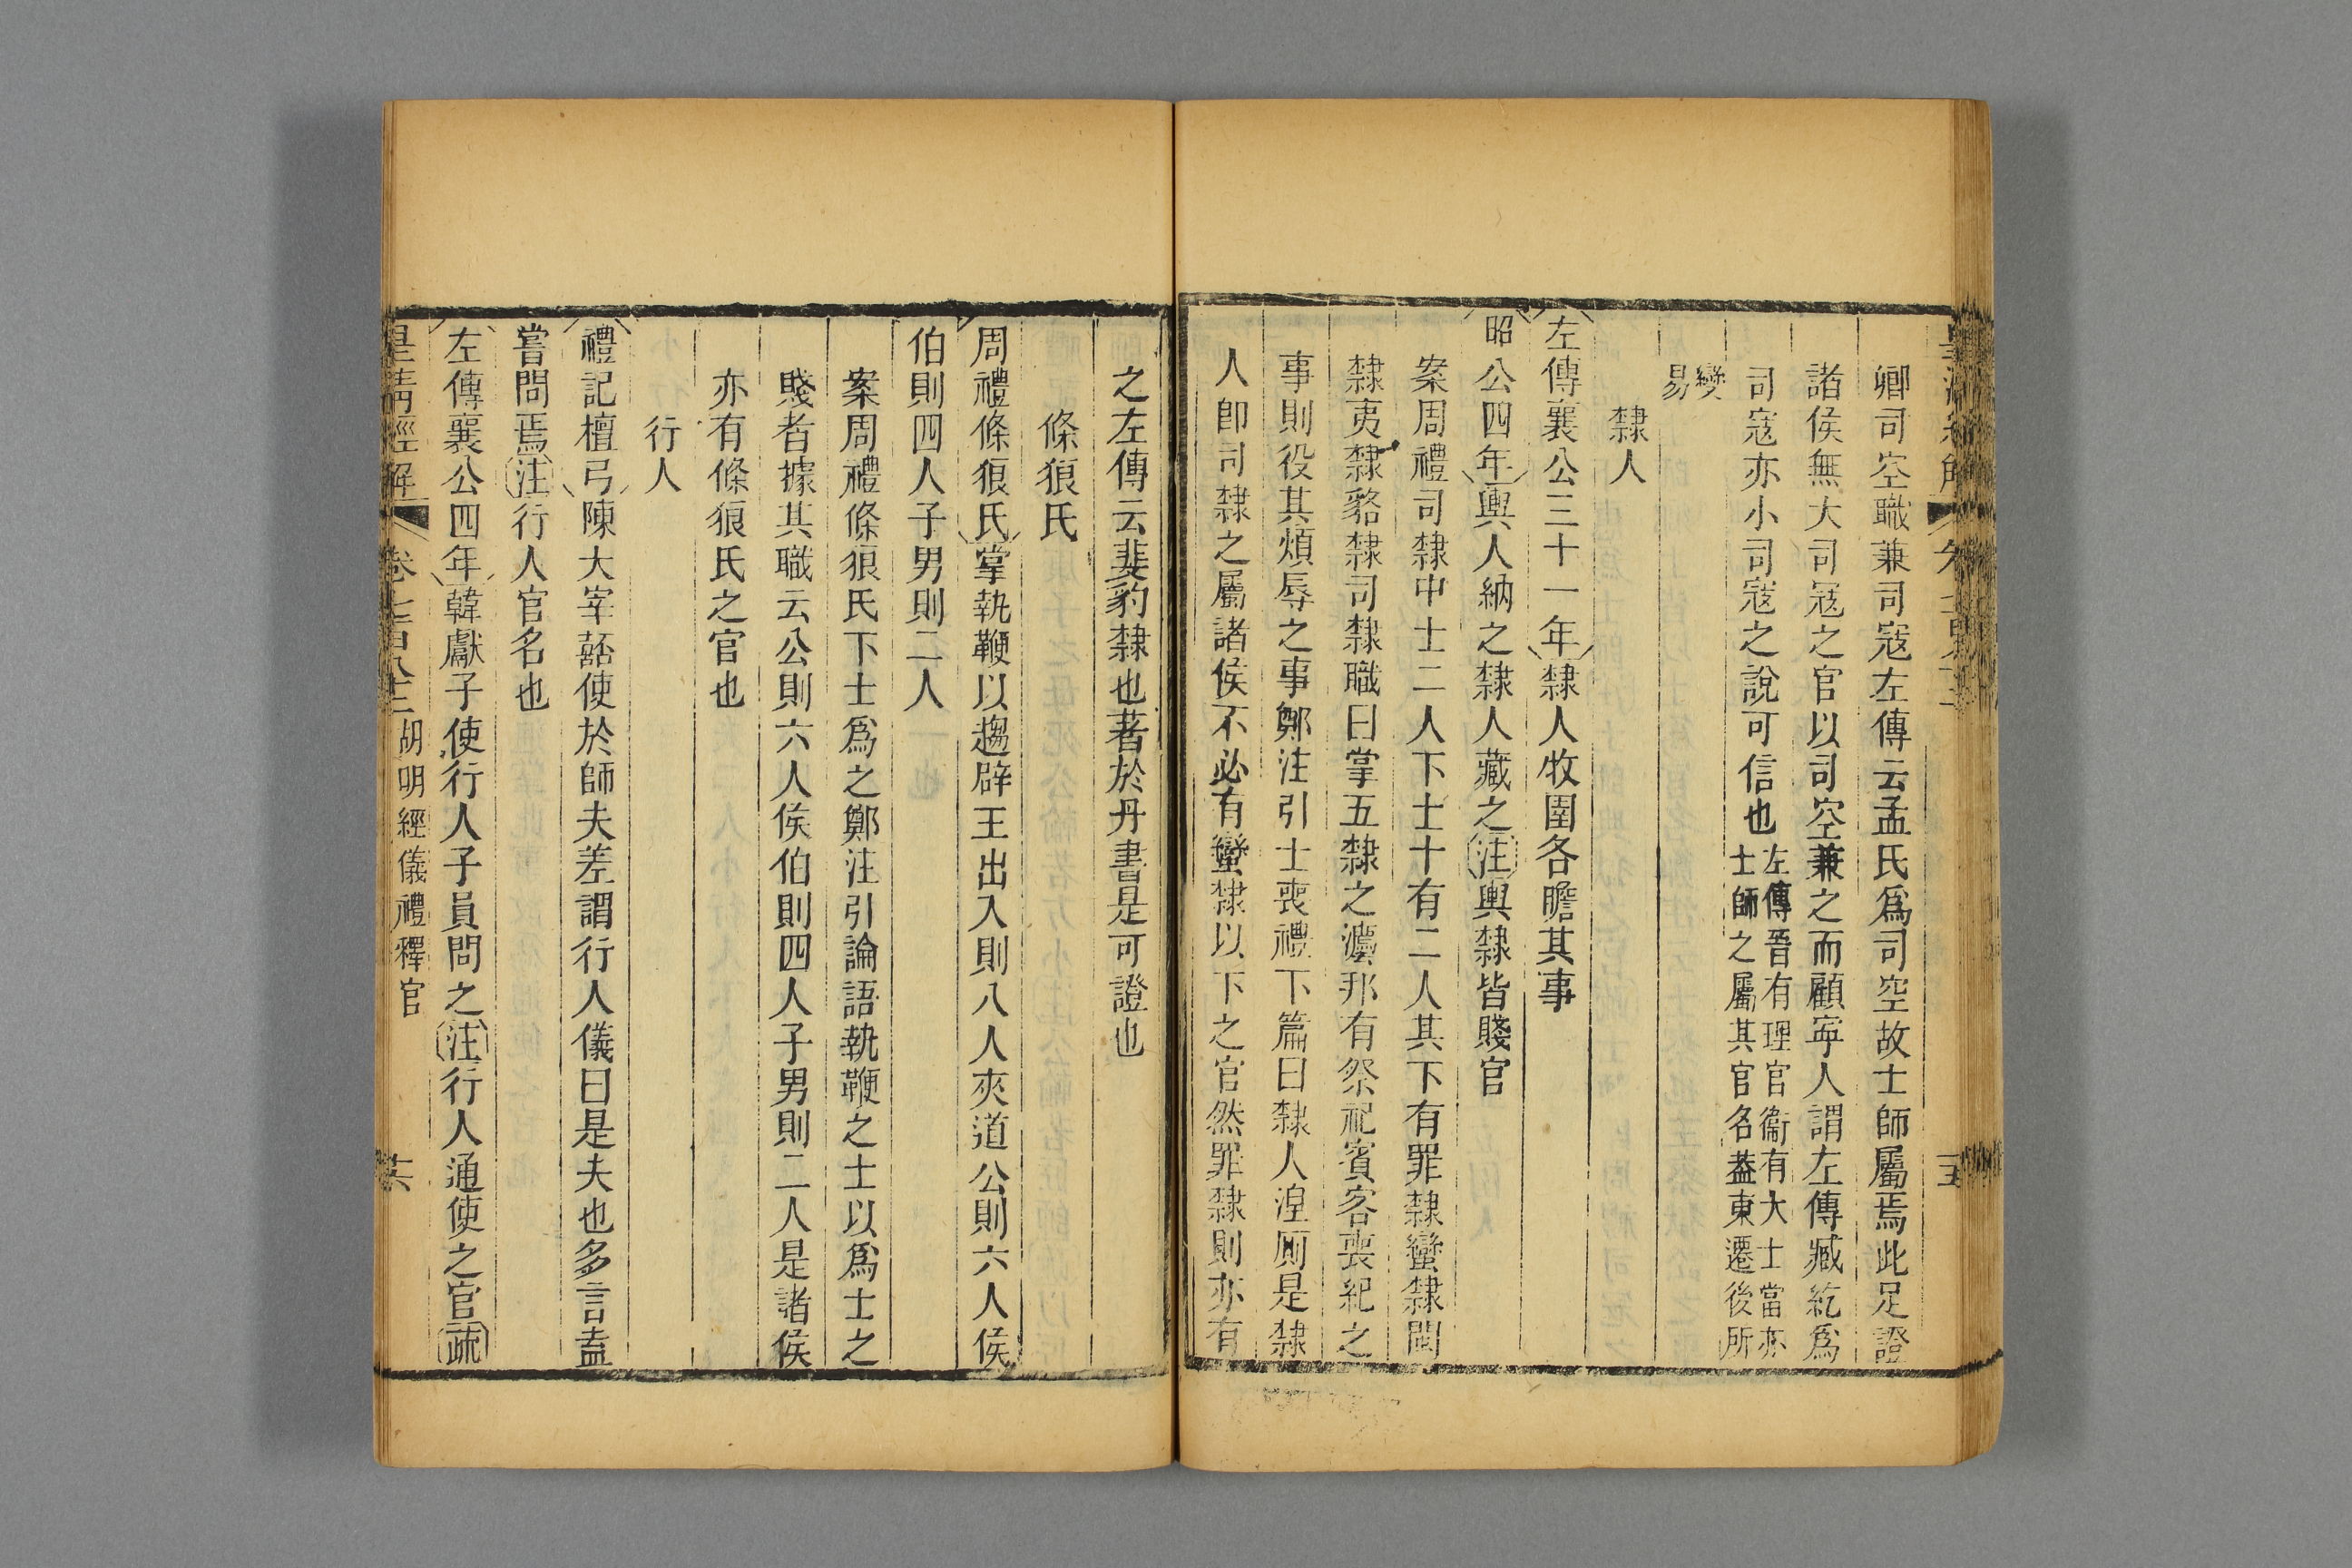 卿司空職兼司寇左傳云孟氏爲司空故士師屬焉此足證
諸侯無大司寇之官以司空兼之而顧寕人謂左傳臧紇爲
司寇亦小司寇之說可信也左傳晉有理官衞有大士當亦
士師之屬其官名葢東遷後所
變
易
隸人
左傳襄公三十一年隸人牧圉各瞻其事
昭公四年輿人納之隸人藏之注輿隸皆賤官
案周禮司隸中士二人下士十有二人其下有罪隸蠻隸閩
隸夷隸貉隸司隸職曰掌五隸之灋邦有祭祀賓客喪紀之
事則役其煩辱之事鄭注引士喪禮下篇曰隸人湼厠是隸
人卽司隸之屬諸侯不必有蠻隸以下之官然罪隸則亦有
之左傳云斐豹隸也著於丹書是可證也
條狼氏
周禮條狼氏掌執鞭以趨辟王出入則八人夾道公則六人侯
伯則四人子男則二人
案周禮條狼氏下士爲之鄭注引論語執鞭之士以爲士之
賤者據其職云公則六人侯伯則四人子男則二人是諸侯
亦有條狼氏之官也
行人
禮記檀弓陳大宰嚭使於師夫差謂行人儀曰是夫也多言盍
嘗問焉注行人官名也
左傳襄公四年韓獻子使行人子員問之注行人通使之官疏
皇清經解 卷七百八十三 胡明經儀禮釋官 六